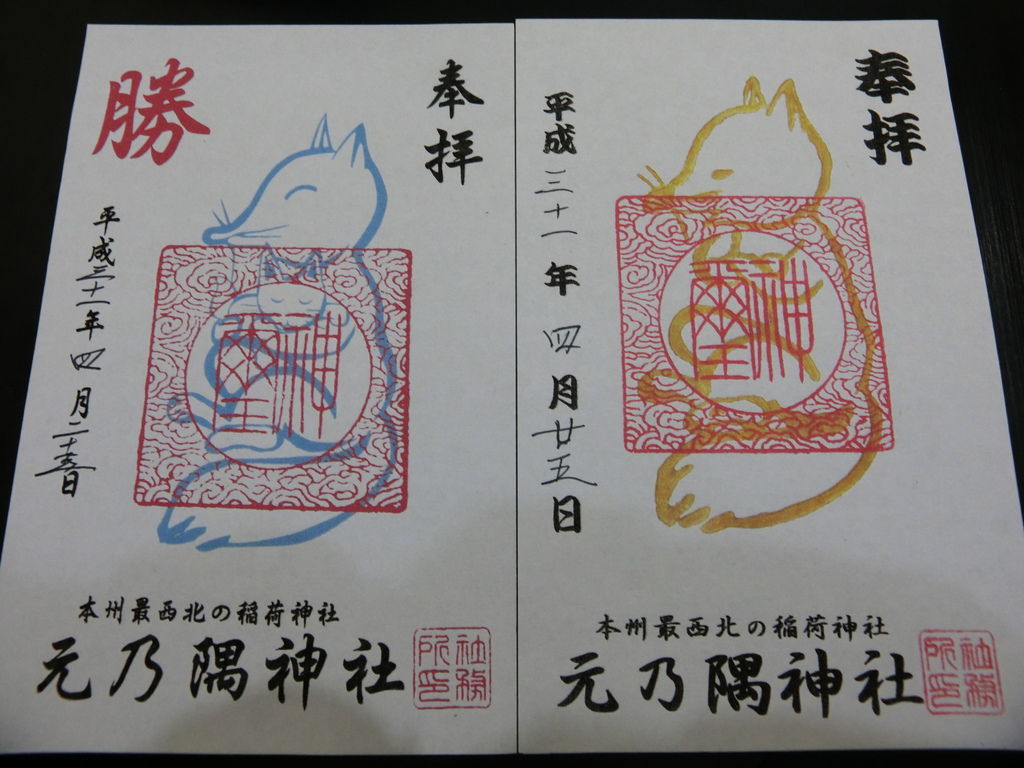 奉拝
勝
平成三十一年四月二十五日
神璽
本州最西北の稲荷神社
元乃隅神社
社務所印
奉拝
平成三十一年四月廿五日
神璽
本州最西北の稲荷神社
元乃隅神社
社務所印